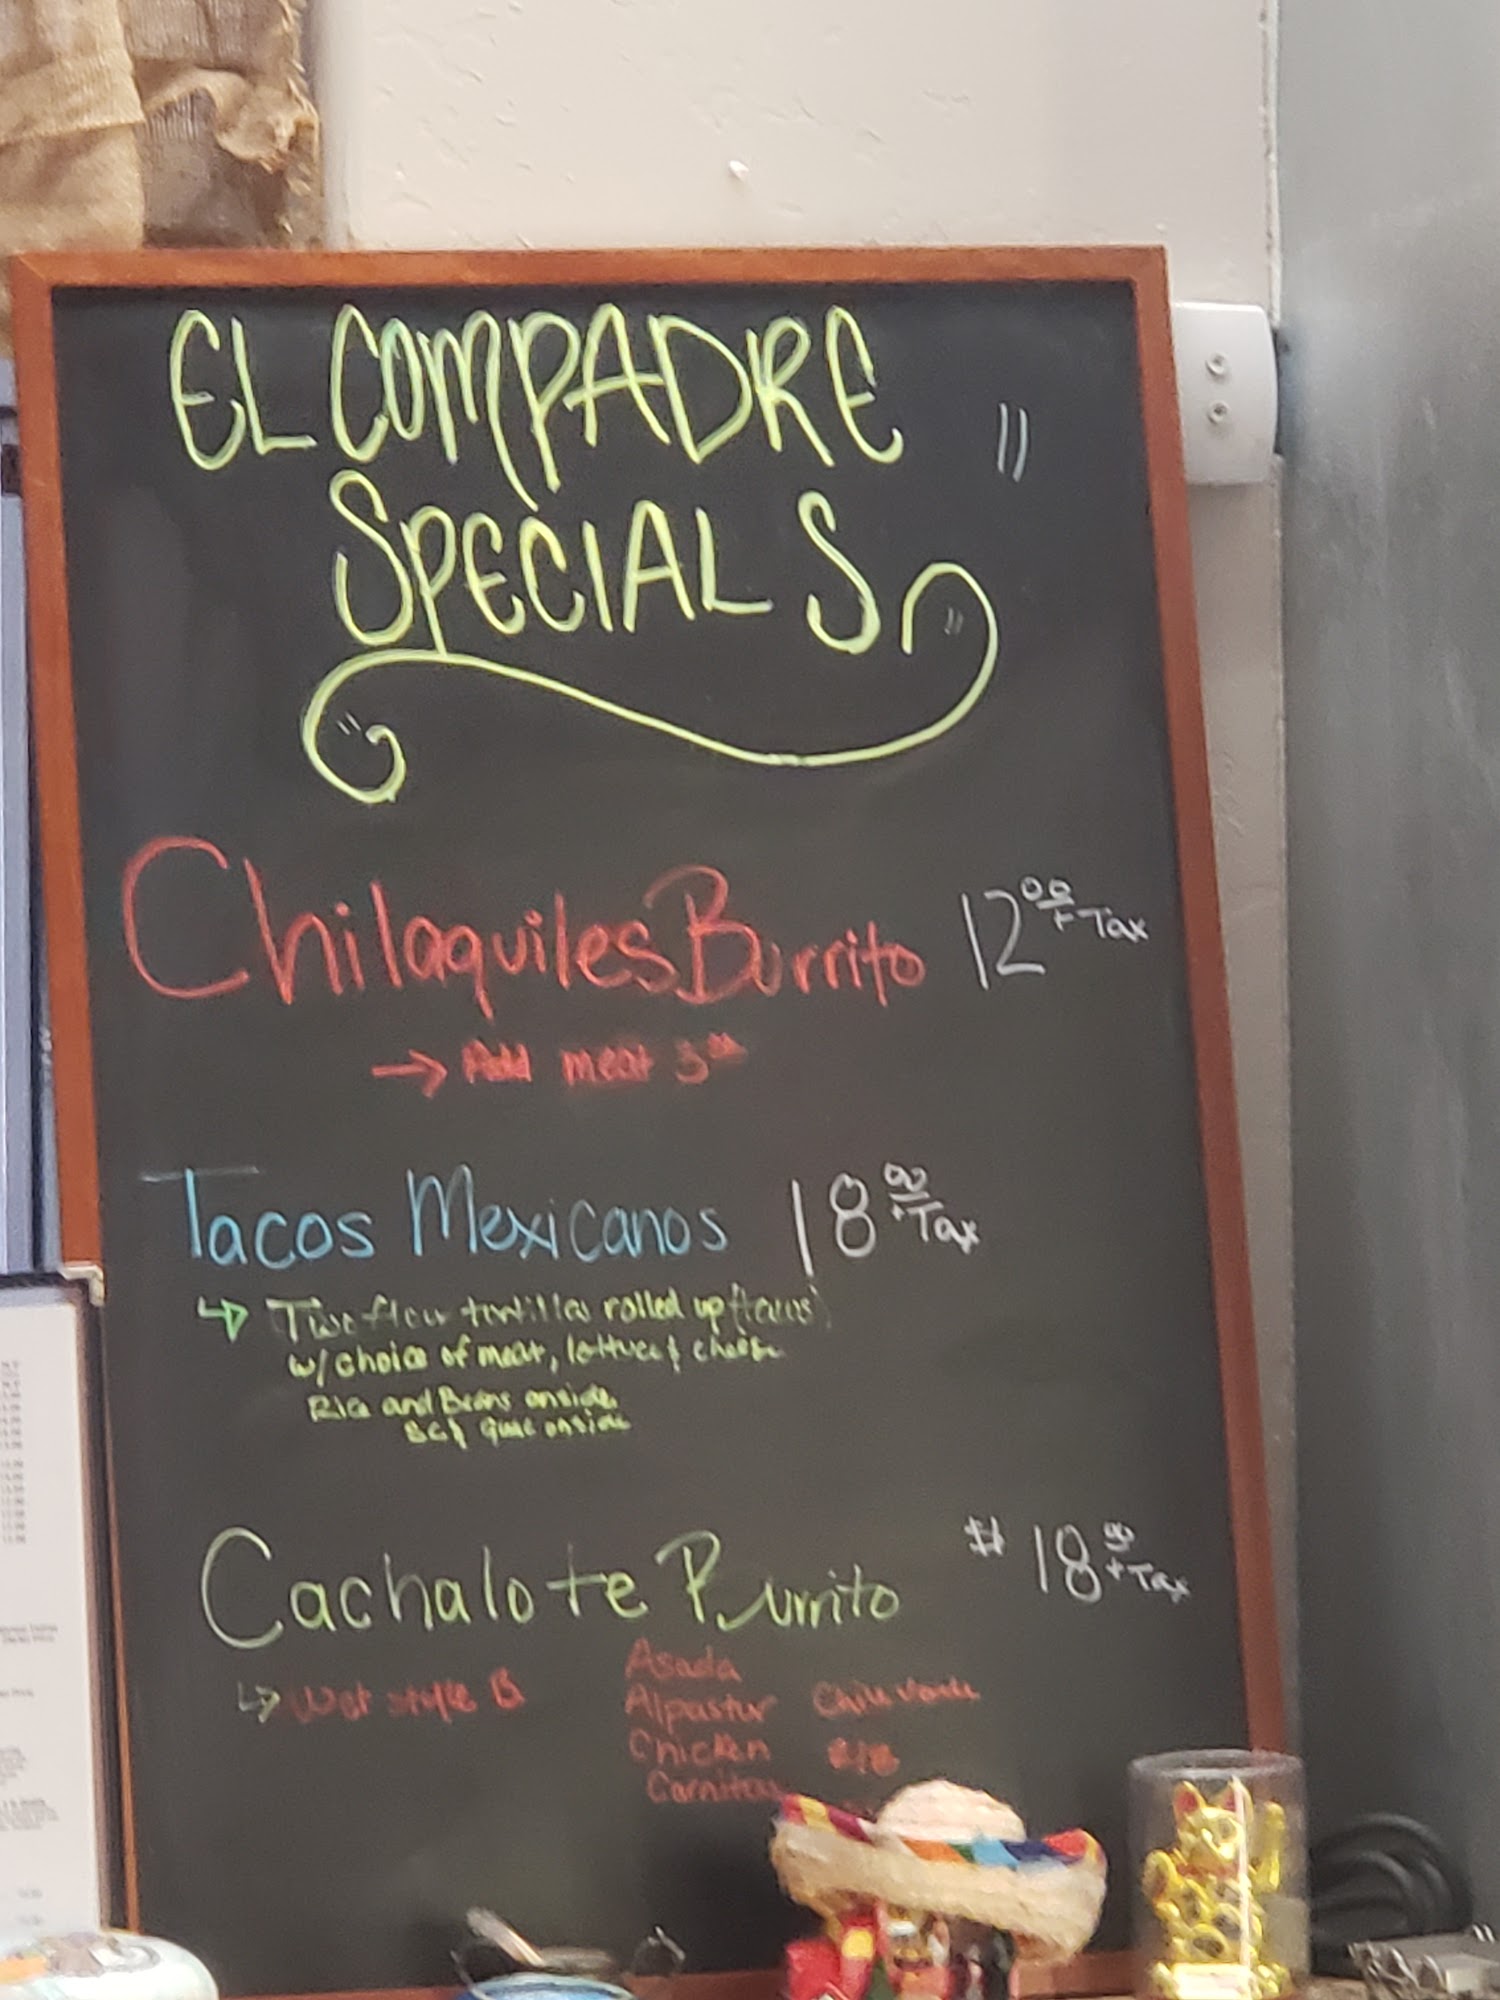 EL COMPADRE
SPECIALS
Chilaquiles Burrito 12 00 + Tax
→ Add meat 3 00
Tacos Mexicanos 18 00 + Tax
Two flour tortillas rolled up (tacos)
w/ choice of meat, lettuce & cheese
Rice and Beans onside
SC & Guac onside
Cachalote Burrito $ 18 00 + Tax
Wet style B
Asada
Alpastor Chile Verde
Chicken
Carnitas